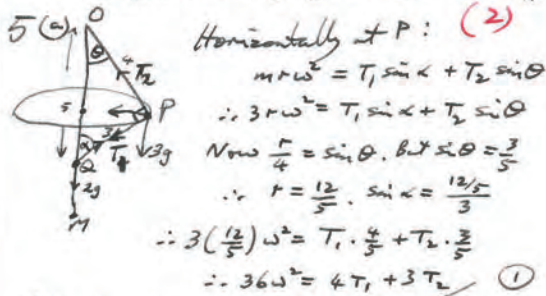 5 (a)
(2)
O
θ
4
T₂
5
P
α
3
T₁
3g
Q
2g
M
Horizontally at P:
mrω² = T₁ sin α + T₂ sin θ
∴ 3rω² = T₁ sin α + T₂ sin θ
Now r/4 = sin θ. But sin θ = 3/5
∴ r = 12/5. sin α = (12/5)/3
∴ 3(12/5)ω² = T₁ · 4/5 + T₂ · 3/5
∴ 36ω² = 4T₁ + 3T₂ ①